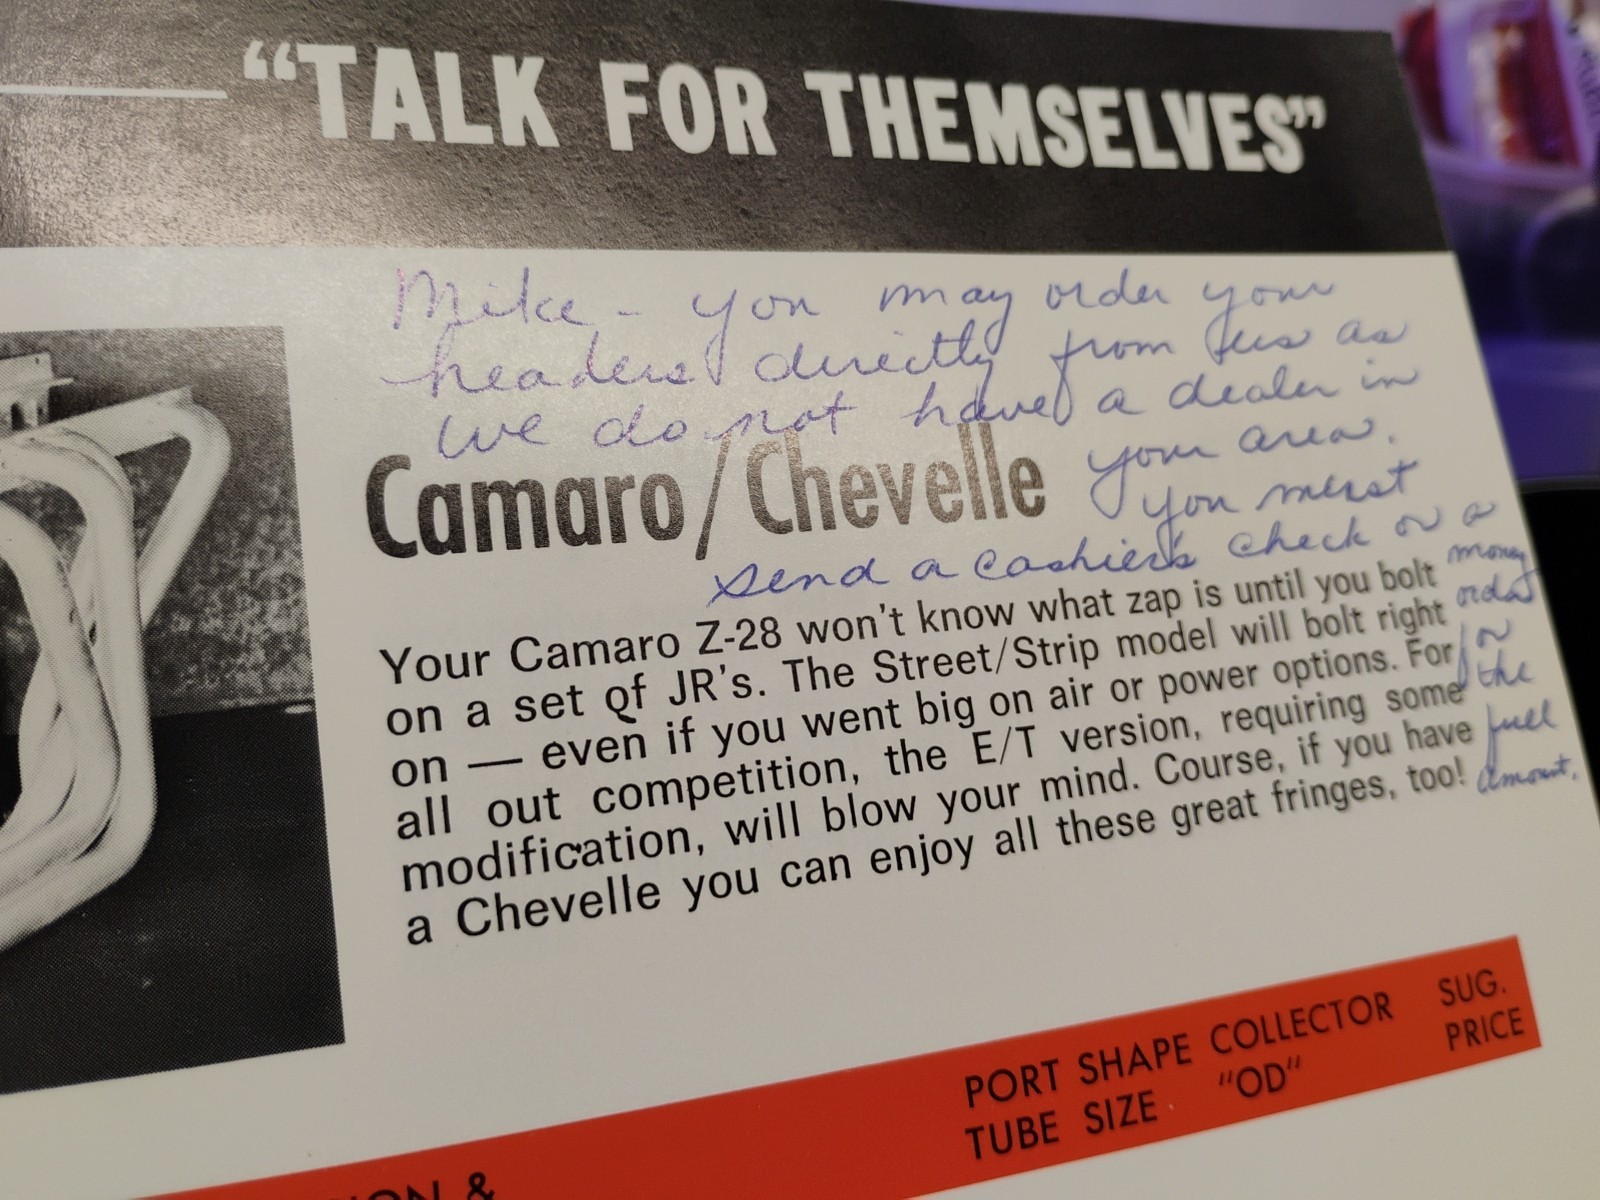 “TALK FOR THEMSELVES”
Mike - you may order your
headers directly from us as
we do not have a dealer in
your area.
you must
send a cashier's check or a
money
order
for
the
full
amount.
Camaro/Chevelle
Your Camaro Z-28 won't know what zap is until you bolt
on a set of JR's. The Street/Strip model will bolt right
on — even if you went big on air or power options. For
all out competition, the E/T version, requiring some
modification, will blow your mind. Course, if you have
a Chevelle you can enjoy all these great fringes, too!
PORT SHAPE COLLECTOR SUG.
TUBE SIZE "OD" PRICE
&